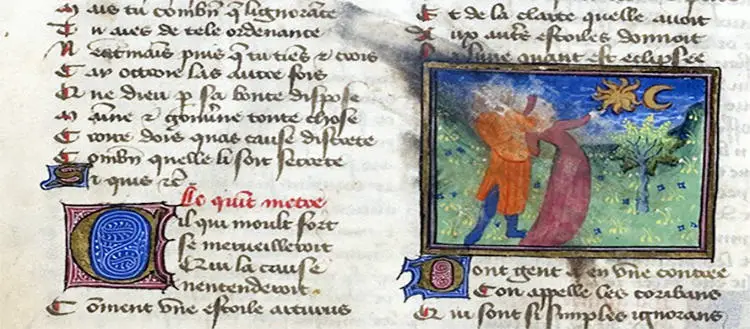 Mais tu combn̄ q̄ lignorante
Tu aies de tele ordenance
Nestmais puis que tu tiens & crois
autre fois
Que dieu p sa bonte dispose
Maine & gouuerne toute chose
Croire dois quas cause discrete
Combn̄ quelle li soit secrete
Si quis
Le quit metre
Cil qui moult fort
se merueilleroit
Qui la cause
nentendroit
Coment vne estoile arturus
Et de la clarte quelle auoit
Aux autres estoiles donnoit
La lune quant est eclipsee
Dont gent a en vne contree
Con appelle les coribans
Qui sont si simples ignorans